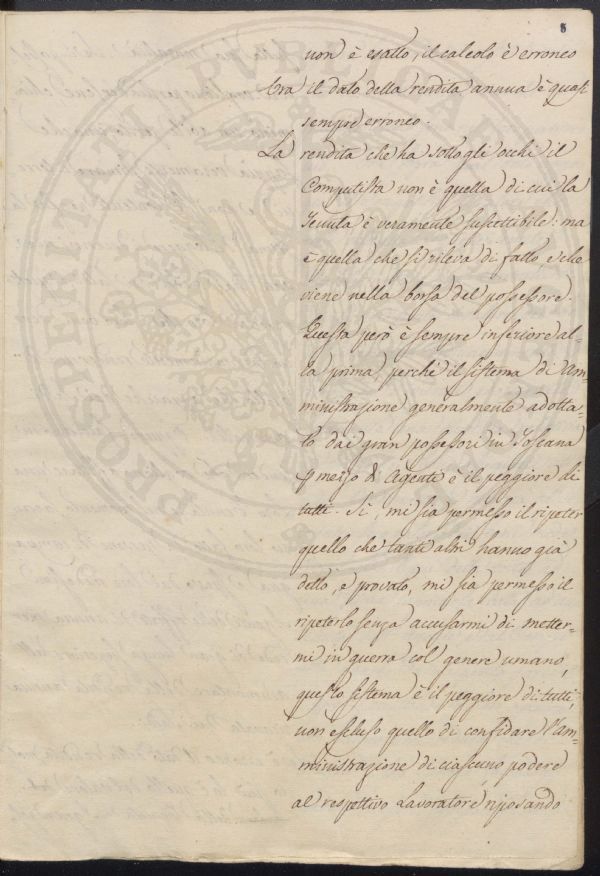 8
non è esatto, il calcolo è erroneo
Ora il dato della rendita annua è quasi
sempre erroneo.
La rendita che ha sotto gli occhi il
Computista non è quella di cui la
Tenuta è veramente suscettibile: ma
è quella che si rileva di fatto, e che
viene nella borsa del possessore.
Questa però è sempre inferiore al-
la prima, perchè il sistema di Am-
ministrazione generalmente adotta-
to dai gran possessori in Toscana
p mezzo di Agenti è il peggiore di
tutti. Si, mi sia permesso il ripeter
quello che tanti altri hanno già
detto, e provato, mi sia permesso il
ripeterlo senza accusarmi di metter-
mi in guerra col genere umano,
questo sistema è il peggiore di tutti,
non escluso quello di confidare l'am-
ministrazione di ciascuno podere
al respettivo Lavoratore riposando
PROSPERITATI PUBLICAE